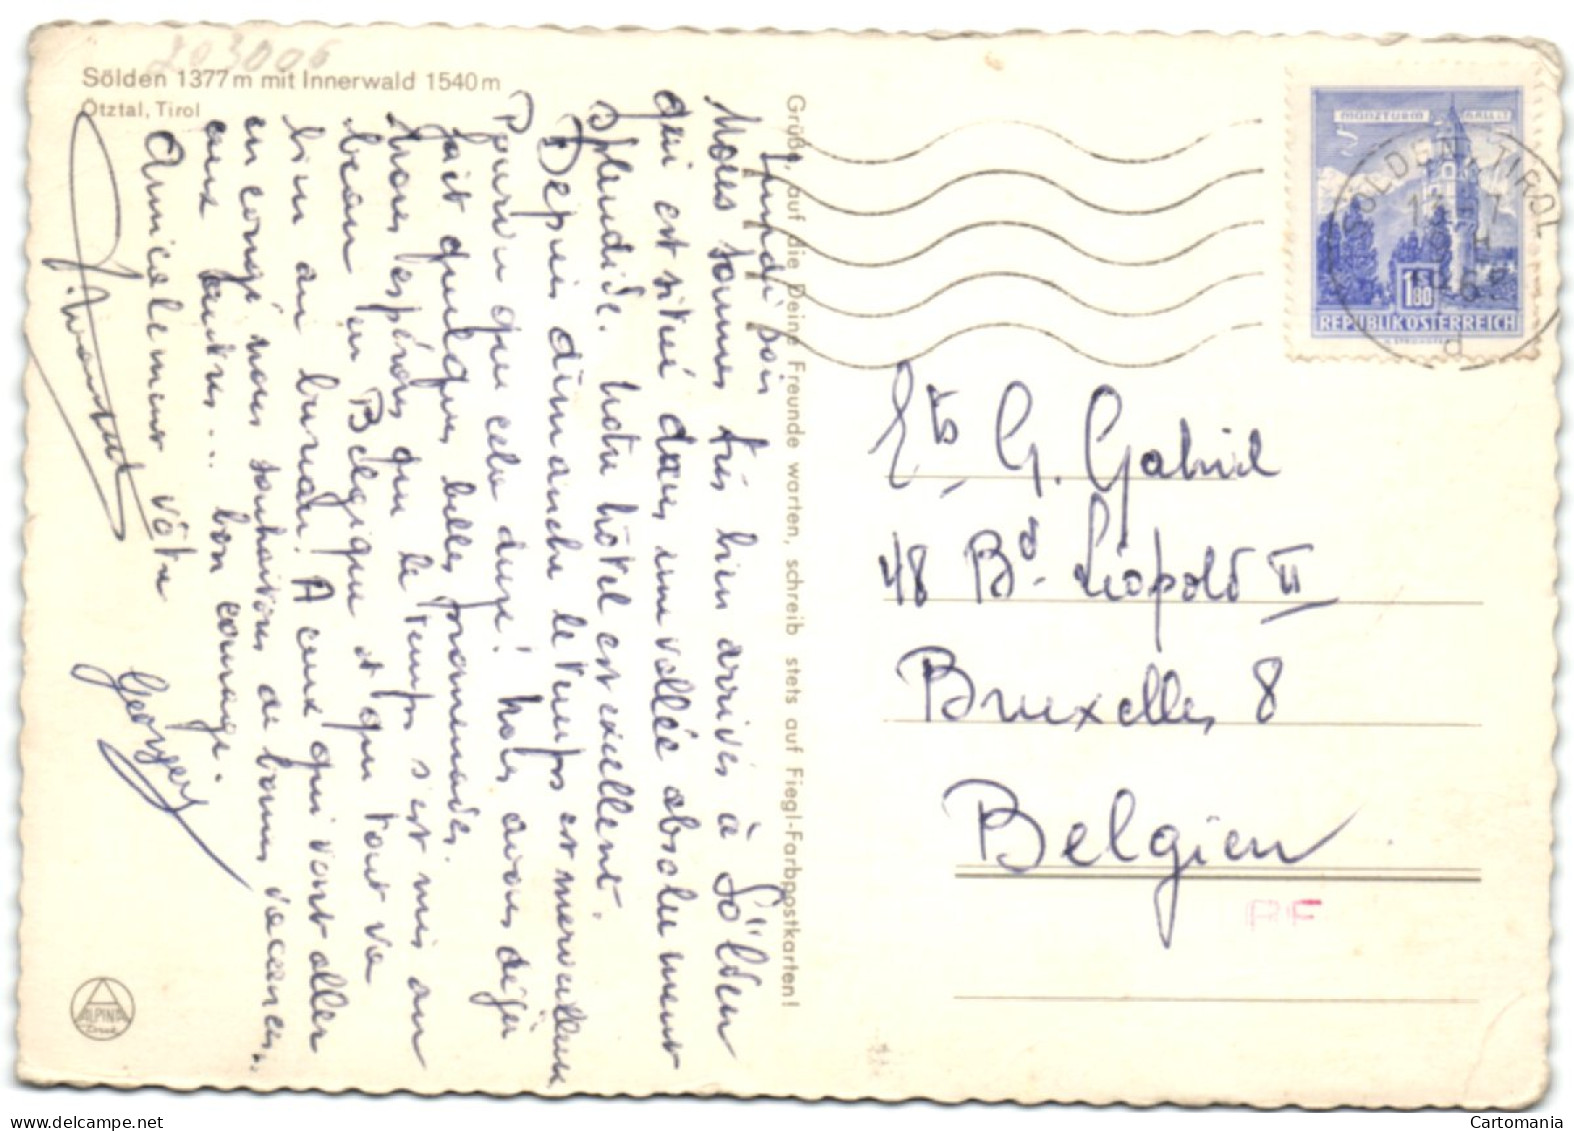 203006
Sölden 1377m mit Innerwald 1540m
Ötztal, Tirol
Jeudi soir
Nous sommes très bien arrivés à Sölden
qui est situé dans une vallée absolument
splendide. Notre hôtel est excellent.
Depuis dimanche le temps est merveilleux
Pourvu que cela dure! Nous avons déjà
fait quelques belles promenades.
Nous espérons que le temps s'est mis au
beau en Belgique et que tout va
bien au bureau! A ceux qui vont aller
en congé nous souhaitons de bonnes vacances..
aux autres... bon courage.
Amicalement vôtre
Georges
Grüße, auf die Deine Freunde warten, schreib stets auf Fiegl-Farbpostkarten!
MÜNZTURM HALL I.T.
1.80
REPUBLIK ÖSTERREICH
SÖLDEN, TIROL
Ets G. Gabriel
48 Bd. Léopold II
Bruxelles 8
Belgien
PF
ALPINA
Cartomania